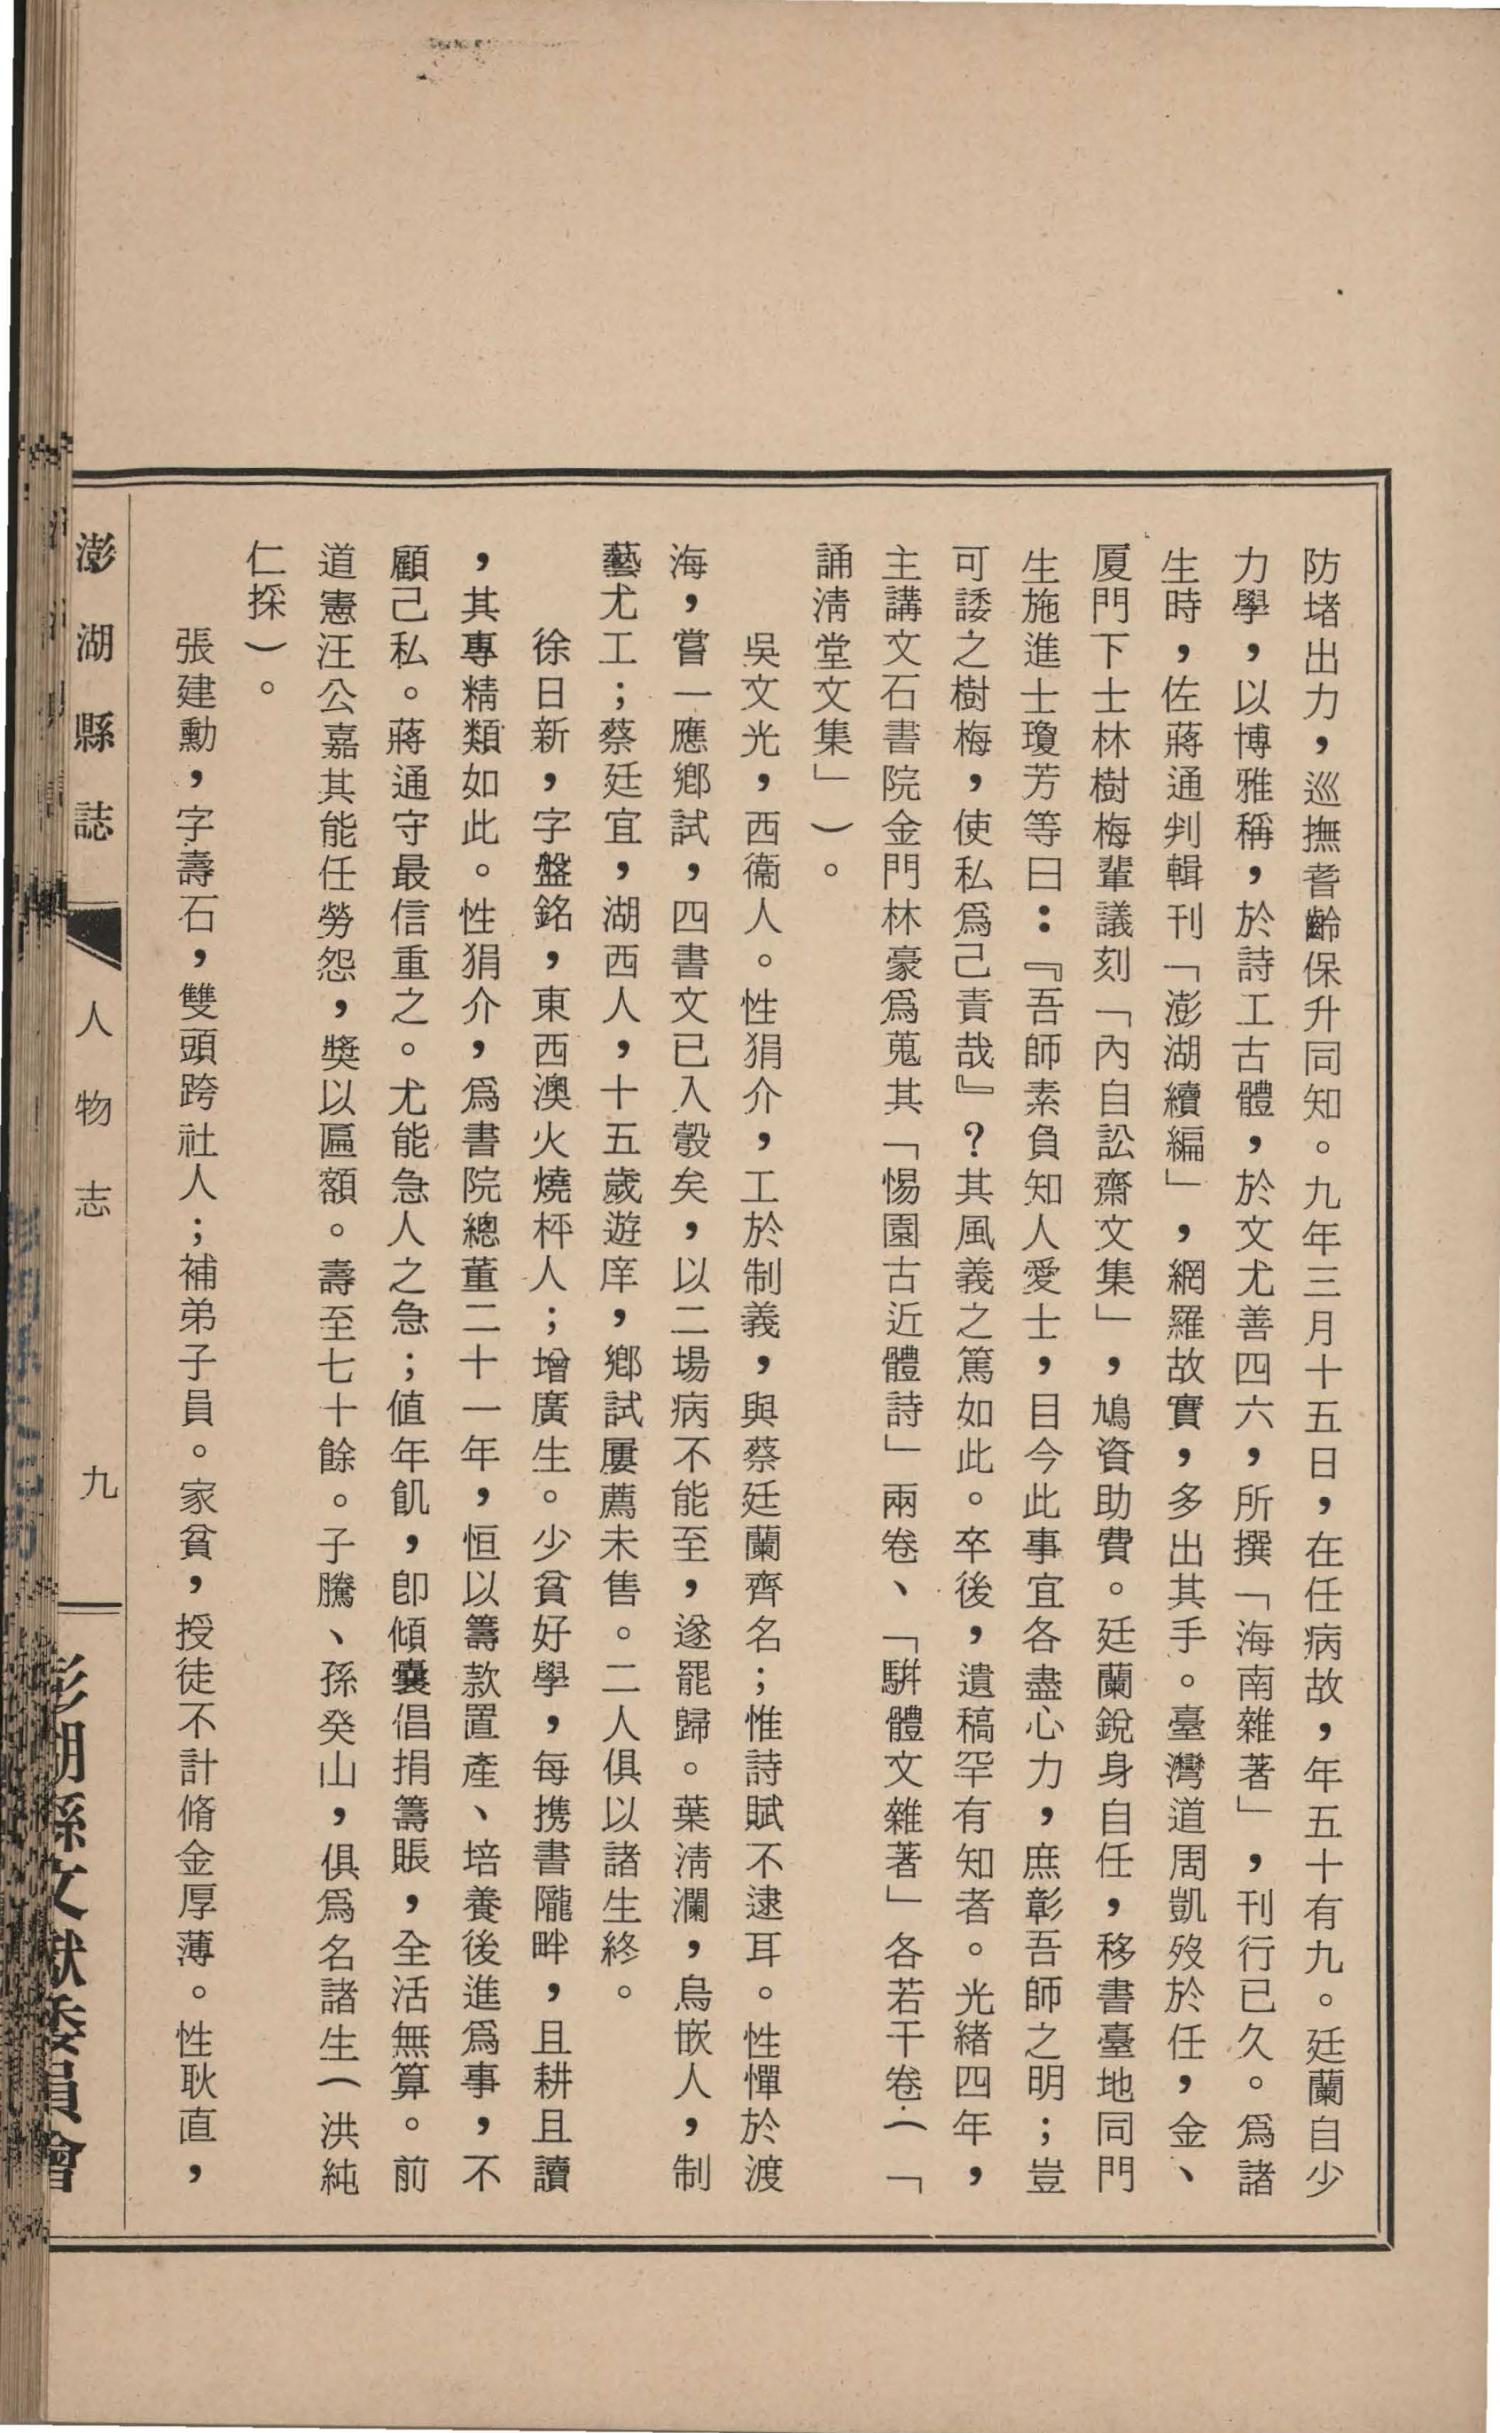 防堵出力，巡撫耆齡保升同知。九年三月十五日，在任病故，年五十有九。廷蘭自少
力學，以博雅稱，於詩工古體，於文尤善四六，所撰「海南雜著」，刊行已久。爲諸
生時，佐蔣通判輯刊「澎湖續編」，網羅故實，多出其手。臺灣道周凱歿於任，金、
厦門下士林樹梅輩議刻「內自訟齋文集」，鳩資助費。廷蘭銳身自任，移書臺地同門
生施進士瓊芳等曰：『吾師素負知人愛士，目今此事宜各盡心力，庶彰吾師之明；豈
可諉之樹梅，使私爲己責哉』？其風義之篤如此。卒後，遺稿罕有知者。光緒四年，
主講文石書院金門林豪爲蒐其「惕園古近體詩」兩卷、「駢體文雜著」各若干卷（「
誦淸堂文集」）。
吳文光，西衞人。性狷介，工於制義，與蔡廷蘭齊名；惟詩賦不逮耳。性憚於渡
海，嘗一應鄉試，四書文已入彀矣，以二場病不能至，遂罷歸。葉淸瀾，烏嵌人，制
藝尤工；蔡廷宜，湖西人，十五歲遊庠，鄉試屢薦未售。二人俱以諸生終。
徐日新，字盤銘，東西澳火燒枰人；增廣生。少貧好學，每携書隴畔，且耕且讀
，其專精類如此。性狷介，爲書院總董二十一年，恒以籌款置產、培養後進爲事，不
顧己私。蔣通守最信重之。尤能急人之急；値年飢，卽傾囊倡捐籌賑，全活無算。前
道憲汪公嘉其能任勞怨，獎以匾額。壽至七十餘。子騰、孫癸山，俱爲名諸生（洪純
仁採）。
張建勳，字壽石，雙頭跨社人；補弟子員。家貧，授徒不計脩金厚薄。性耿直，
澎湖縣誌 人物志 九 澎湖縣文獻委員會